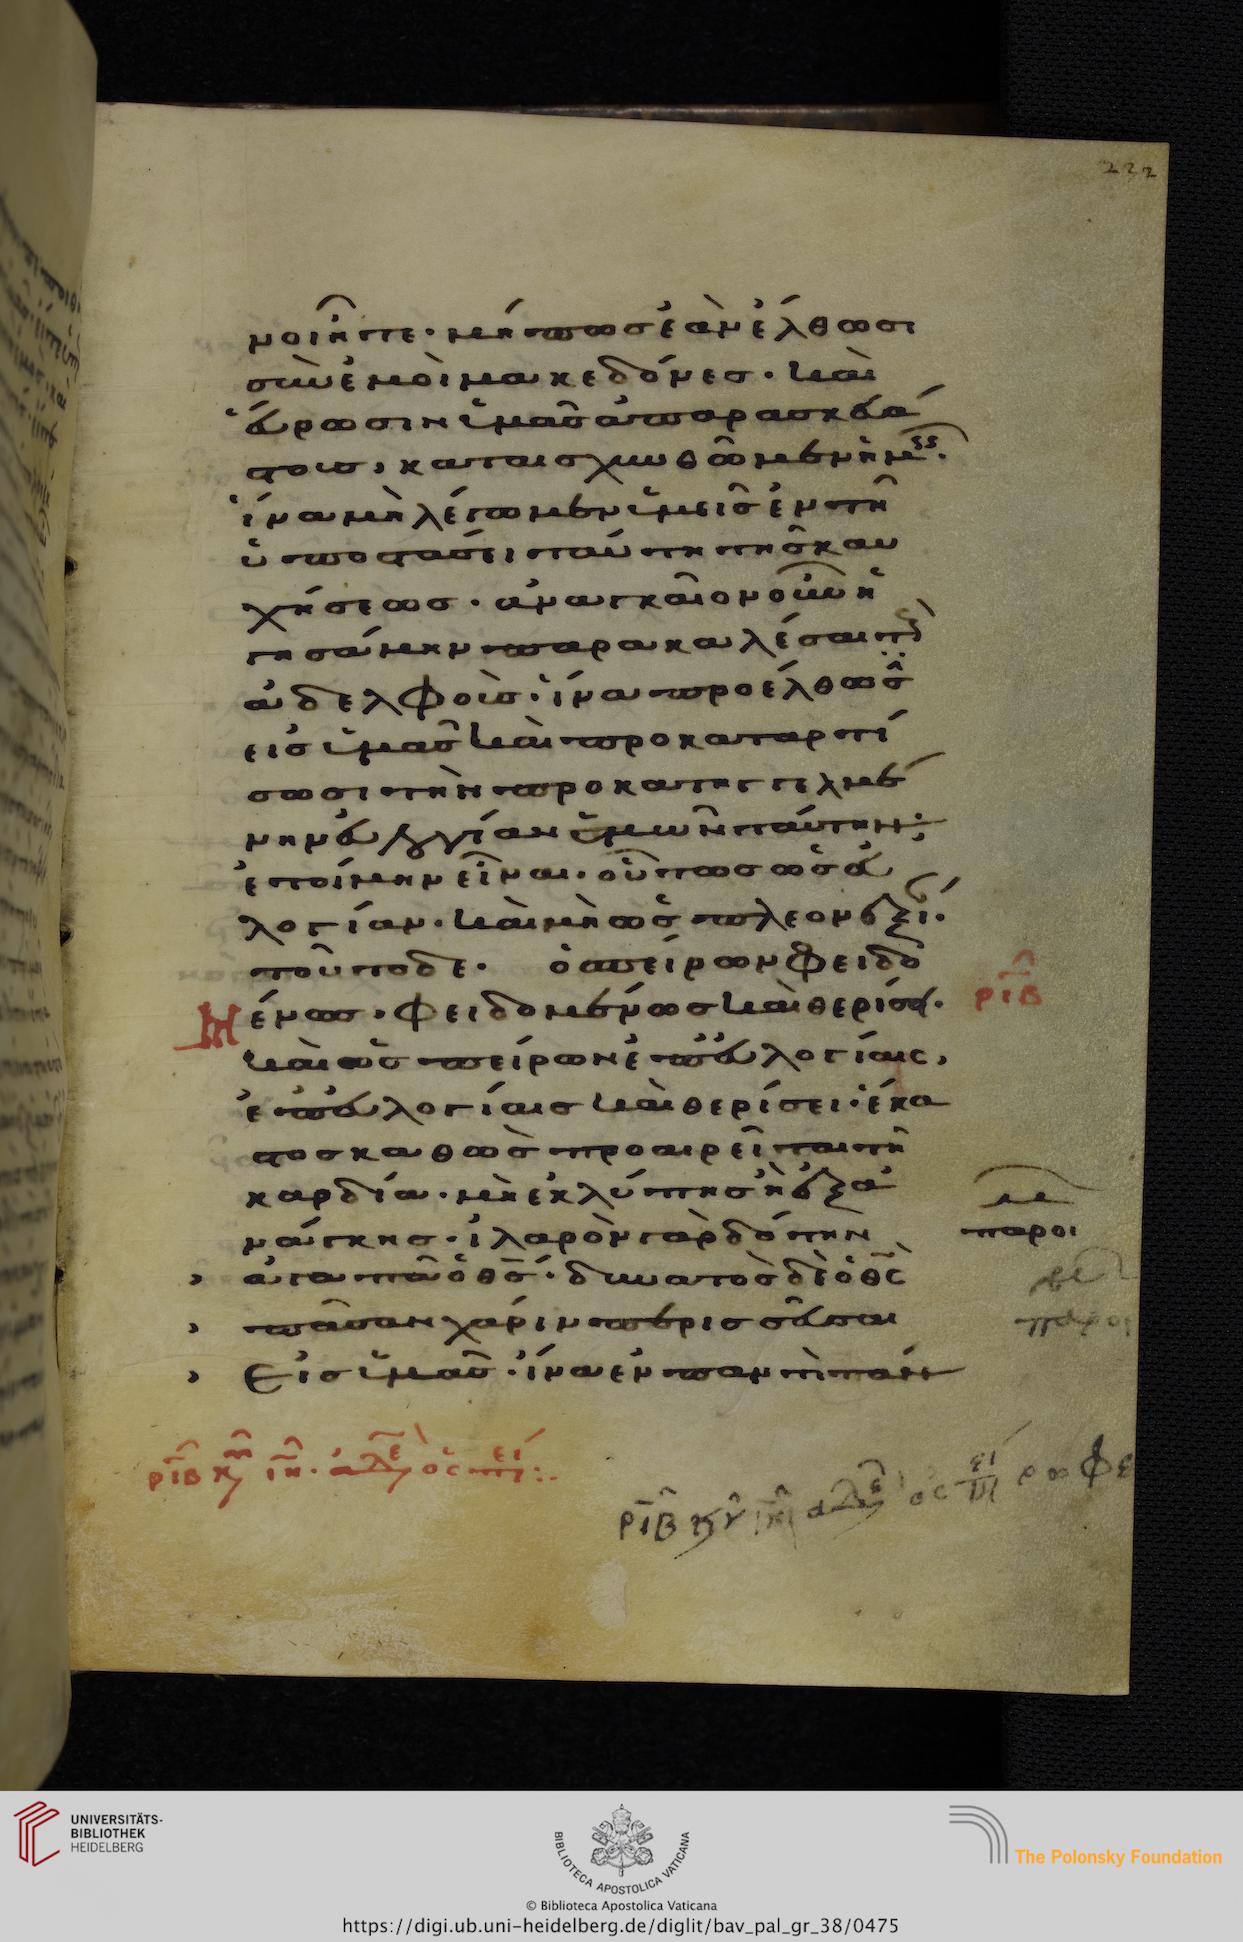 222
μοι ἦτε· μήπως ἐὰν ἔλθωσι
σὺν ἐμοὶ μακεδόνες· καὶ
εὕρωσιν ὑμᾶς ἀπαρασκευά
στους, καταισχυνθῶμεν ἡμεῖς·
ἵνα μὴ λέγωμεν ὑμεῖς ἐν τῆ
ὑποστάσει ταύτη τῆς καυ
χήσεως· ἀναγκαῖον οὖν ἡ
γησάμην παρακαλέσαι τοὺς
ἀδελφοὺς· ἵνα προέλθωσ
εἰς ὑμᾶς καὶ προκαταρτί
σωσι τὴν προκατηγγελμέ
νην εὐλογίαν ὑμῶν ταύτην·
ἑτοίμην εἶναι· οὕτως ὡς εὐ
λογίαν· καὶ μὴ ὡς πλεονεξί·
τοῦτο δε· ὁ σπείρων φειδο
μένως· φειδομένως καὶ θερίσει·
καὶ ὡς σπείρων ἐπ' εὐλογίαις,
ἐπ' εὐλογίαις καὶ θερίσει· ἕκα
στος καθὼς προαιρεῖται τῆ
καρδία· μὴ ἐκ λύπης ἢ ἐξ ἀ
νάγκης· ἱλαρὸν γὰρ δότην
ἀγαπᾶ ὁ θς· δυνατὸς δὲ ὁ θς
πᾶσαν χάριν περισσεῦσαι
εἰς ὑμᾶς· ἵνα ἐν παντὶ πάν
ριβ
παροι
παροι
ριβ κυ ιη· ἀδελ ὁ σπει:
ριβ κυ ιη ἀδελ ὁ σπει ρω φε
UNIVERSITÄTS-
BIBLIOTHEK
HEIDELBERG
BIBLIOTECA APOSTOLICA VATICANA
The Polonsky Foundation
© Biblioteca Apostolica Vaticana
https://digi.ub.uni-heidelberg.de/diglit/bav_pal_gr_38/0475